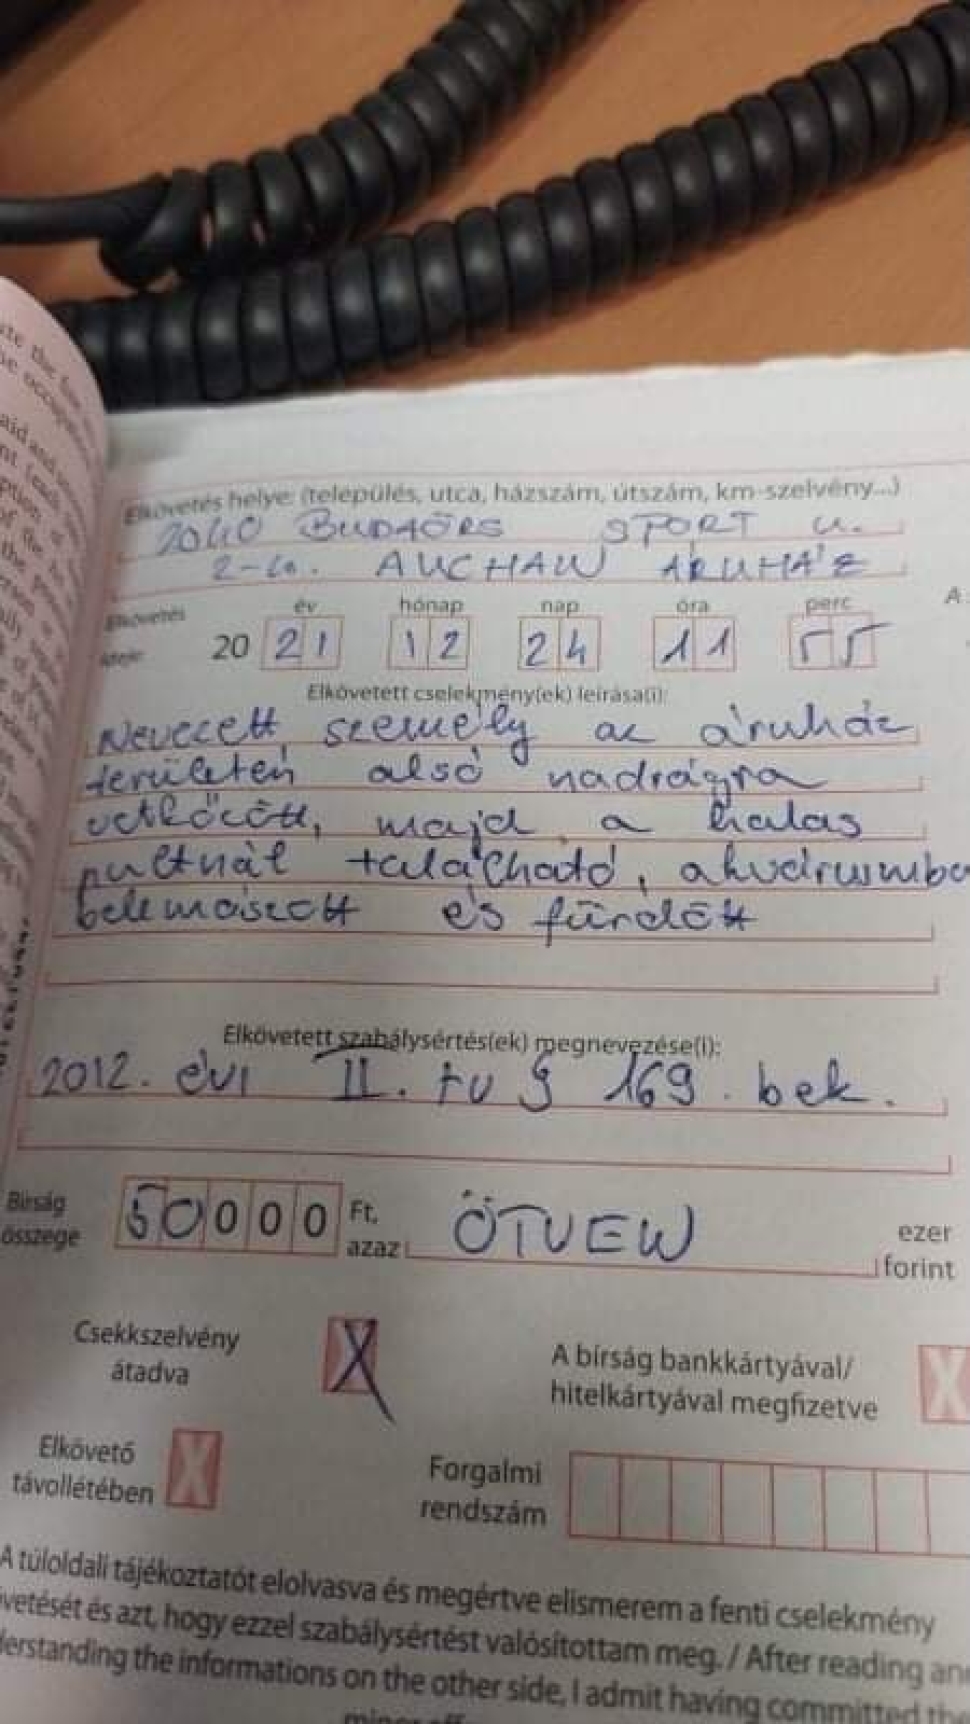 Elkövetés helye: (település, utca, házszám, útszám, km-szelvény...)
2040 BUDAÖRS SPORT u.
2-10. AUCHAN ÁRUHÁZ
Elkövetés ideje: 20 21 év 12 hónap 24 nap 11 óra 55 perc
A
Elkövetett cselekmény(ek) leírása(i):
Nevezett személy az áruház
területén alsó nadrágra
vetkőzött, majd a halas
pultnál található, akvárumba
belemászott és fürdött
Elkövetett szabálysértés(ek) megnevezése(i):
2012. évi II. tv § 169. bek.
Bírság összege 50000 Ft, azaz ÖTVEN ezer forint
Csekkszelvény átadva X
A bírság bankkártyával/ hitelkártyával megfizetve X
Elkövető távollétében X
Forgalmi rendszám
A túloldali tájékoztatót elolvasva és megértve elismerem a fenti cselekmény
vetését és azt, hogy ezzel szabálysértést valósítottam meg. / After reading and
derstanding the informations on the other side, I admit having committed the